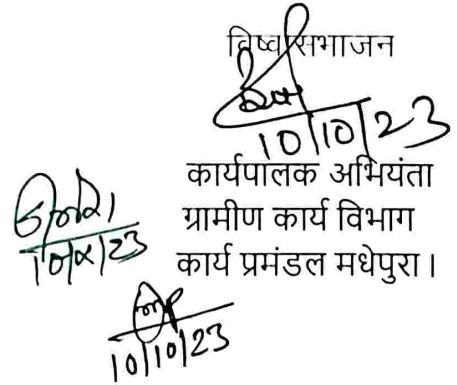 विष्वासभाजन
10/10/23
कार्यपालक अभियंता
ग्रामीण कार्य विभाग
कार्य प्रमंडल मधेपुरा।
10/10/23